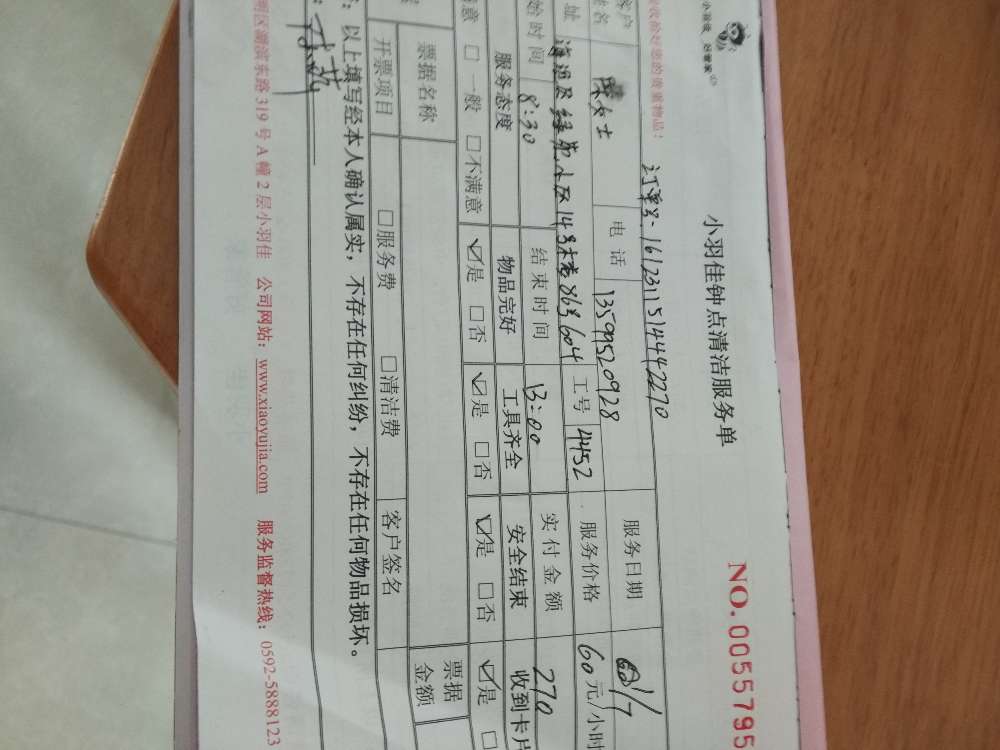 小羽佳 好管家
小羽佳钟点清洁服务单
NO.0055795
收拾好您的贵重物品：
订单号·1612311514442270
客户
女士
电话
13599520928
服务日期
址
小区14号楼 604
工号
4452
服务价格
60元/小时
始时间
8:30
结束时间
13:00
实付金额
270
服务态度
物品完好
工具齐全
安全结束
收到卡片
意 □一般 □不满意
☑是 □否
☑是 □否
☑是 □否
☑是 □
票据名称
票据
金额
开票项目
□服务费
□清洁费
客户签名
：以上填写经本人确认属实，不存在任何纠纷，不存在任何物品损坏。
明区湖滨东路319号A幢2层小羽佳 公司网站：www.xiaoyujia.com 服务监督热线：0592-5888123